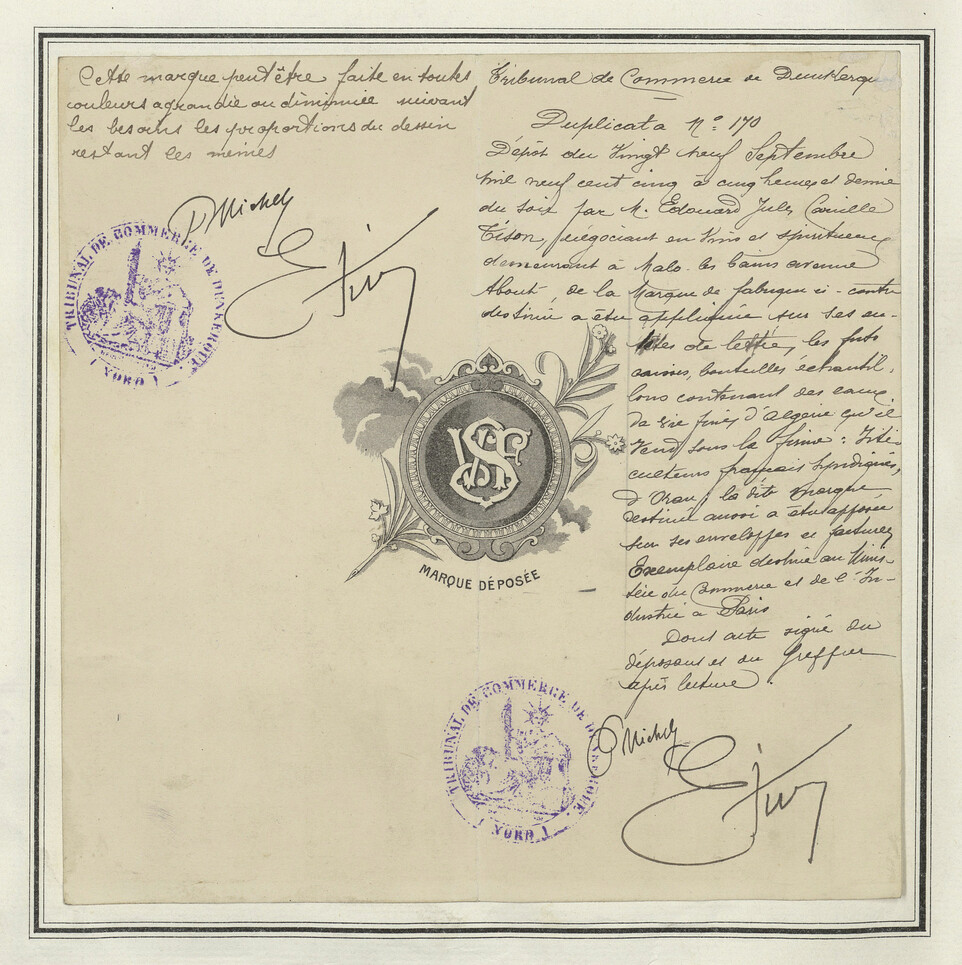 Cette marque peut être faite en toutes
couleurs agrandie ou diminuée suivant
les besoins les proportions du dessin
restant les mêmes
P Michel
TRIBUNAL DE COMMERCE DE DUNKERQUE
(NORD)
Tribunal de Commerce de Dunkerque
Duplicata N° 170
Dépôt du Vingt neuf Septembre
mil neuf cent cinq à cinq heures et demie
du soir par M. Edouard Jules Camille
Tison, négociant en Vins et spiritueux
demeurant à Malo-les bains avenue
About, de la Marque de fabrique ci-contre
destinée à être appliquée sur ses en-
têtes de lettre, les futs
caisses, bouteilles, échantil-
lons contenant des eaux
de vie fines d'Algérie qu'il
Vend sous la firme: Viti-
culteurs français Syndiqués,
d'Oran; la dite marque
destinée aussi à être apposée
sur ses enveloppes et factures
Exemplaire destiné au Minis-
tère du Commerce et de l'In-
dustrie à Paris
Dont acte signé du
déposant et du Greffier
après lecture.
VSF
MARQUE DÉPOSÉE
TRIBUNAL DE COMMERCE DE DUNKERQUE
(NORD)
P Michel